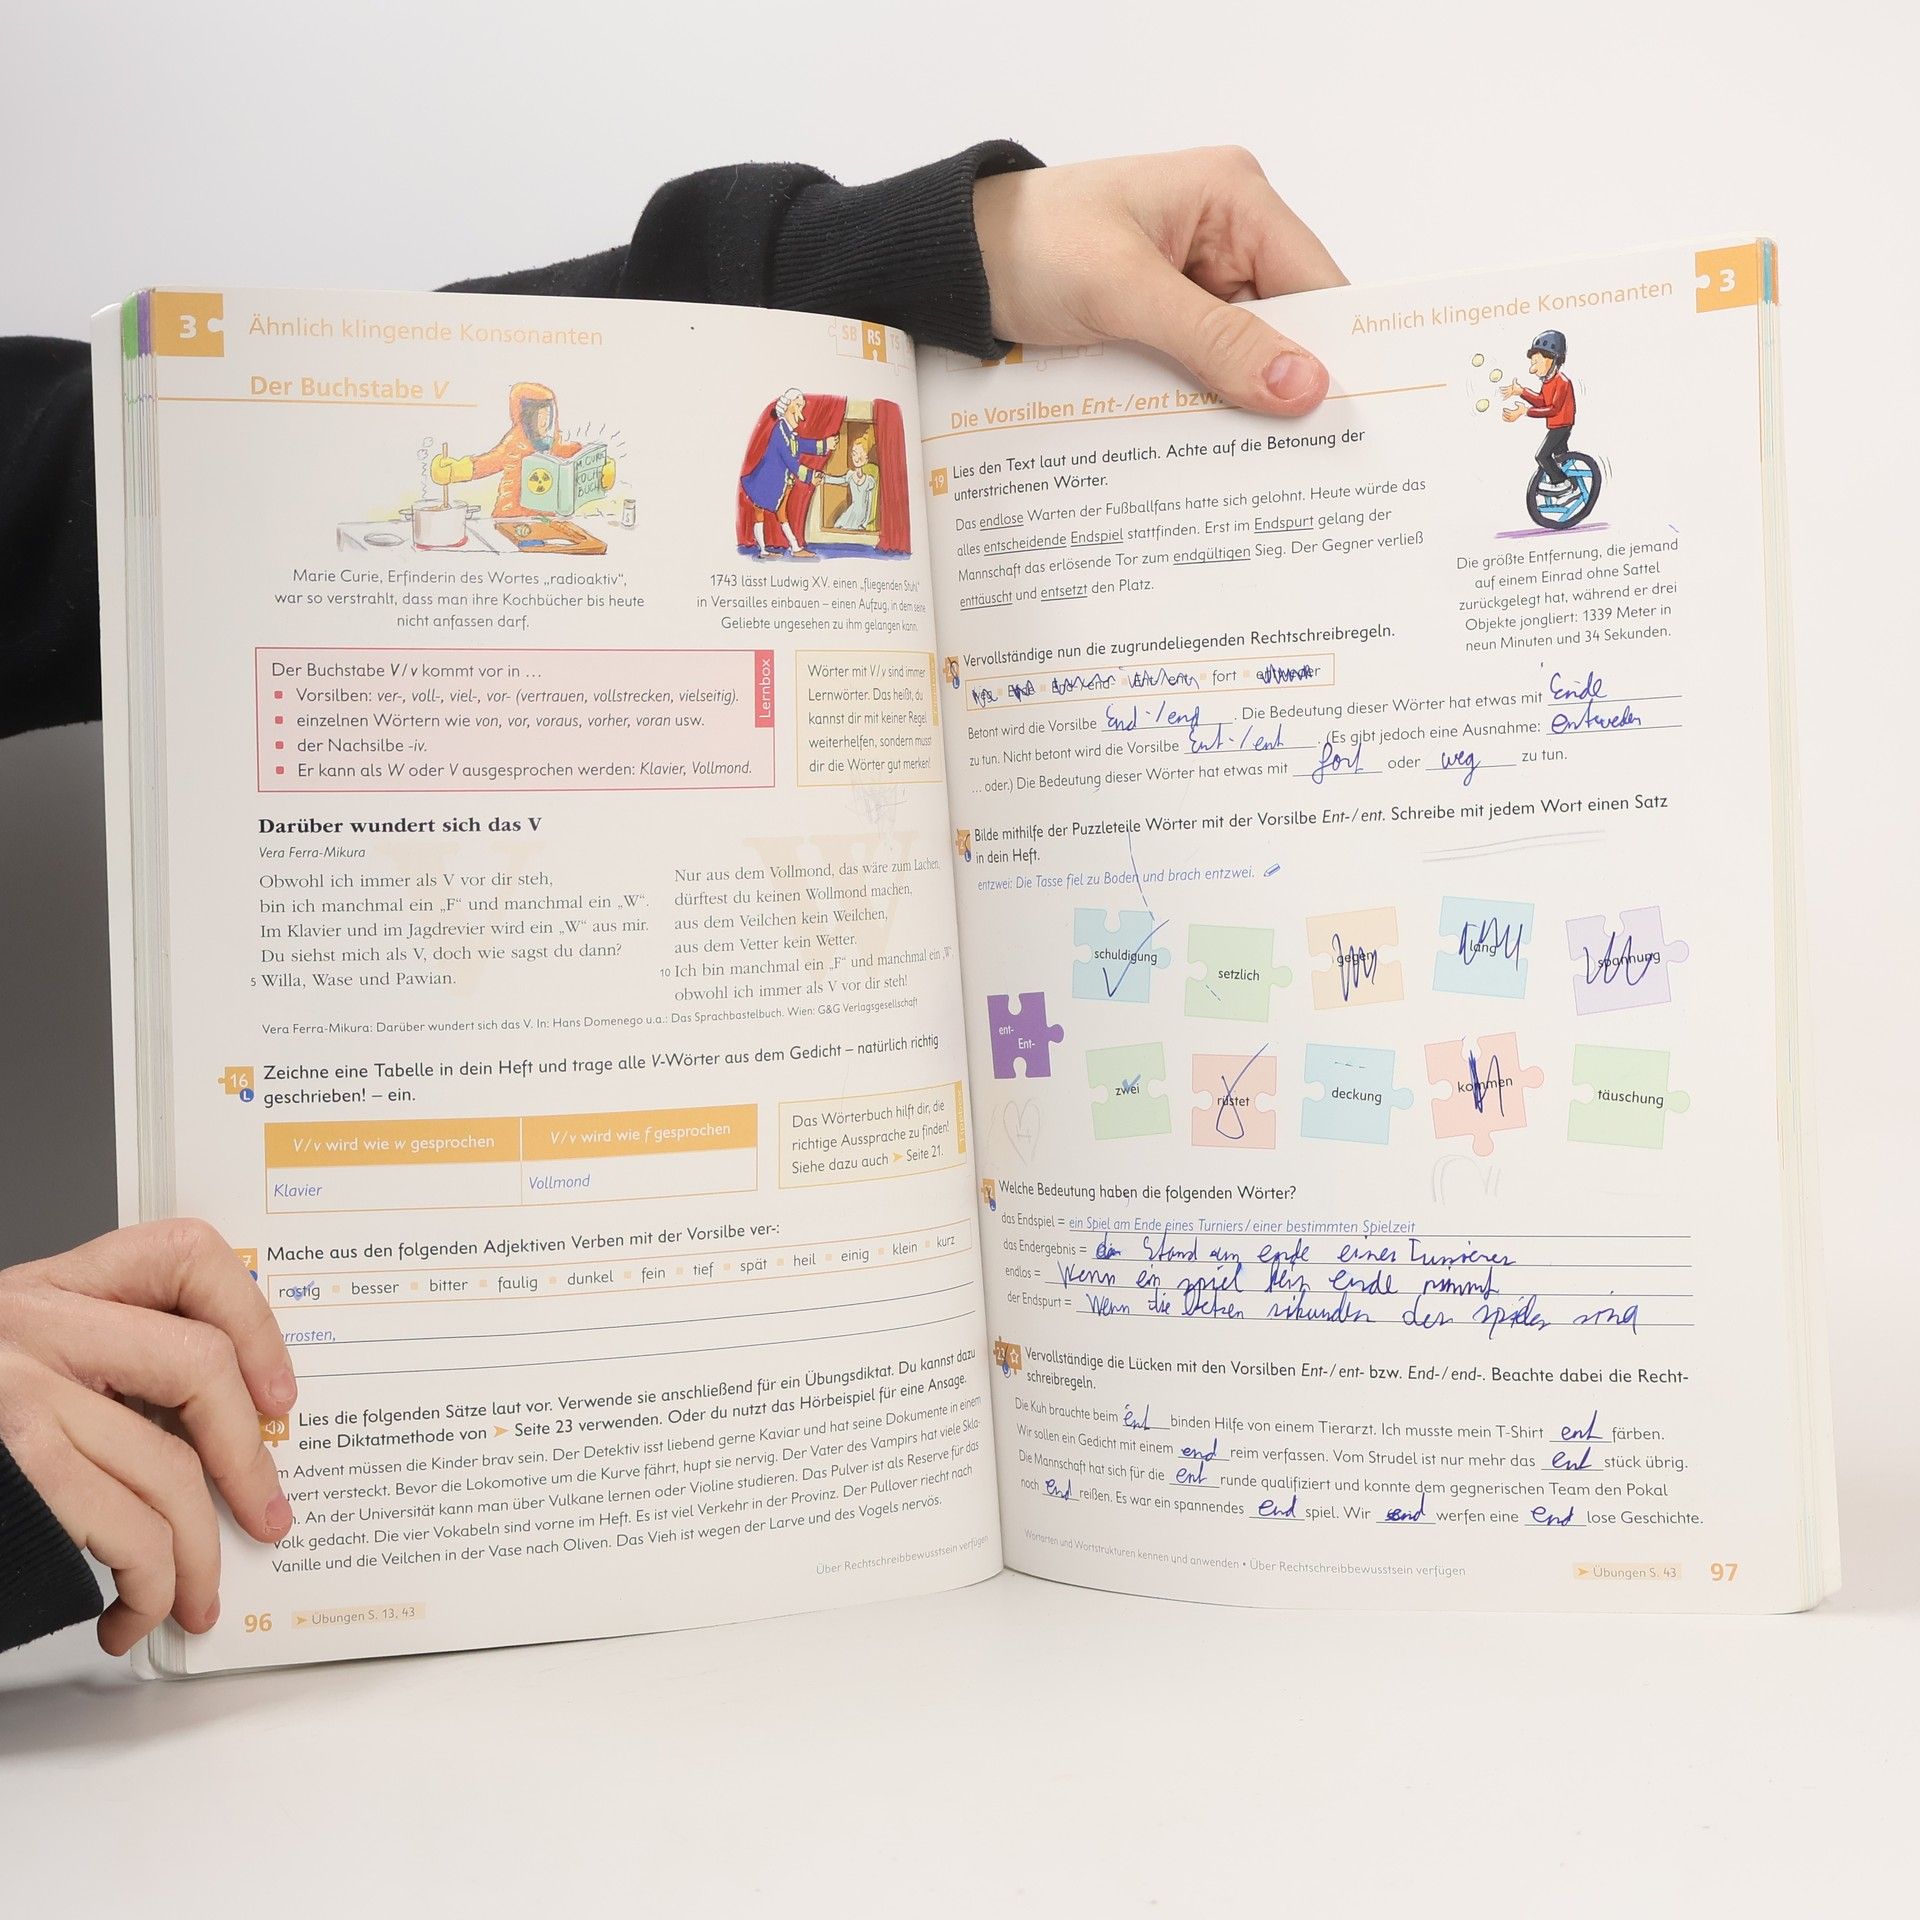 3
Ähnlich klingende Konsonanten
SB RS TS
Der Buchstabe V
M. CURIE
KOCH
BUCH
Marie Curie, Erfinderin des Wortes „radioaktiv“,
war so verstrahlt, dass man ihre Kochbücher bis heute
nicht anfassen darf.
1743 lässt Ludwig XV. einen „fliegenden Stuhl“
in Versailles einbauen – einen Aufzug, in dem seine
Geliebte ungesehen zu ihm gelangen kann.
Der Buchstabe V/v kommt vor in …
Vorsilben: ver-, voll-, viel-, vor- (vertrauen, vollstrecken, vielseitig).
einzelnen Wörtern wie von, vor, voraus, vorher, voran usw.
der Nachsilbe -iv.
Er kann als W oder V ausgesprochen werden: Klavier, Vollmond.
Lernbox
Wörter mit V/v sind immer
Lernwörter. Das heißt, du
kannst dir mit keiner Regel
weiterhelfen, sondern musst
dir die Wörter gut merken!
Darüber wundert sich das V
Vera Ferra-Mikura
Obwohl ich immer als V vor dir steh,
bin ich manchmal ein „F“ und manchmal ein „W“.
Im Klavier und im Jagdrevier wird ein „W“ aus mir.
Du siehst mich als V, doch wie sagst du dann?
5 Willa, Wase und Pawian.
Nur aus dem Vollmond, das wäre zum Lachen,
dürftest du keinen Wollmond machen,
aus dem Veilchen kein Weilchen,
aus dem Vetter kein Wetter.
10 Ich bin manchmal ein „F“ und manchmal ein „W“,
obwohl ich immer als V vor dir steh!
Vera Ferra-Mikura: Darüber wundert sich das V. In: Hans Domenego u.a.: Das Sprachbastelbuch. Wien: G&G Verlagsgesellschaft
16
L
Zeichne eine Tabelle in dein Heft und trage alle V-Wörter aus dem Gedicht – natürlich richtig
geschrieben! – ein.
V/v wird wie w gesprochen
V/v wird wie f gesprochen
Klavier
Vollmond
Das Wörterbuch hilft dir, die
richtige Aussprache zu finden!
Siehe dazu auch ➤ Seite 21.
7
Mache aus den folgenden Adjektiven Verben mit der Vorsilbe ver-:
rostig besser bitter faulig dunkel fein tief spät heil einig klein kurz
rrosten,
Lies die folgenden Sätze laut vor. Verwende sie anschließend für ein Übungsdiktat. Du kannst dazu
eine Diktatmethode von ➤ Seite 23 verwenden. Oder du nutzt das Hörbeispiel für eine Ansage.
m Advent müssen die Kinder brav sein. Der Detektiv isst liebend gerne Kaviar und hat seine Dokumente in einem
uvert versteckt. Bevor die Lokomotive um die Kurve fährt, hupt sie nervig. Der Vater des Vampirs hat viele Skla-
n. An der Universität kann man über Vulkane lernen oder Violine studieren. Das Pulver ist als Reserve für das
Volk gedacht. Die vier Vokabeln sind vorne im Heft. Es ist viel Verkehr in der Provinz. Der Pullover riecht nach
Vanille und die Veilchen in der Vase nach Oliven. Das Vieh ist wegen der Larve und des Vogels nervös.
Über Rechtschreibbewusstsein verfügen
96
➤ Übungen S. 13, 43
Ähnlich klingende Konsonanten
3
Die Vorsilben Ent-/ent bzw.
19
Lies den Text laut und deutlich. Achte auf die Betonung der
unterstrichenen Wörter.
Das endlose Warten der Fußballfans hatte sich gelohnt. Heute würde das
alles entscheidende Endspiel stattfinden. Erst im Endspurt gelang der
Mannschaft das erlösende Tor zum endgültigen Sieg. Der Gegner verließ
enttäuscht und entsetzt den Platz.
Die größte Entfernung, die jemand
auf einem Einrad ohne Sattel
zurückgelegt hat, während er drei
Objekte jongliert: 1339 Meter in
neun Minuten und 34 Sekunden.
Vervollständige nun die zugrundeliegenden Rechtschreibregeln.
fort
Betont wird die Vorsilbe End-/end . Die Bedeutung dieser Wörter hat etwas mit Ende
zu tun. Nicht betont wird die Vorsilbe Ent-/ent . (Es gibt jedoch eine Ausnahme: entweder
… oder.) Die Bedeutung dieser Wörter hat etwas mit fort oder weg zu tun.
Bilde mithilfe der Puzzleteile Wörter mit der Vorsilbe Ent-/ent. Schreibe mit jedem Wort einen Satz
in dein Heft.
entzwei: Die Tasse fiel zu Boden und brach entzwei.
schuldigung setzlich gegen lang spannung
ent-
Ent-
zwei rüstet deckung kommen täuschung
Welche Bedeutung haben die folgenden Wörter?
das Endspiel = ein Spiel am Ende eines Turniers/einer bestimmten Spielzeit
das Endergebnis = Stand am ende eines Turnieres
endlos = Wenn ein spiel kein ende nimmt
der Endspurt = Wenn die letzen sekunden des spieles sind
23
Vervollständige die Lücken mit den Vorsilben Ent-/ent- bzw. End-/end-. Beachte dabei die Recht-
schreibregeln.
Die Kuh brauchte beim ent binden Hilfe von einem Tierarzt. Ich musste mein T-Shirt ent färben.
Wir sollen ein Gedicht mit einem end reim verfassen. Vom Strudel ist nur mehr das ent stück übrig.
Die Mannschaft hat sich für die ent runde qualifiziert und konnte dem gegnerischen Team den Pokal
noch end reißen. Es war ein spannendes end spiel. Wir end werfen eine end lose Geschichte.
Wortarten und Wortstrukturen kennen und anwenden • Über Rechtschreibbewusstsein verfügen
➤ Übungen S. 43
97